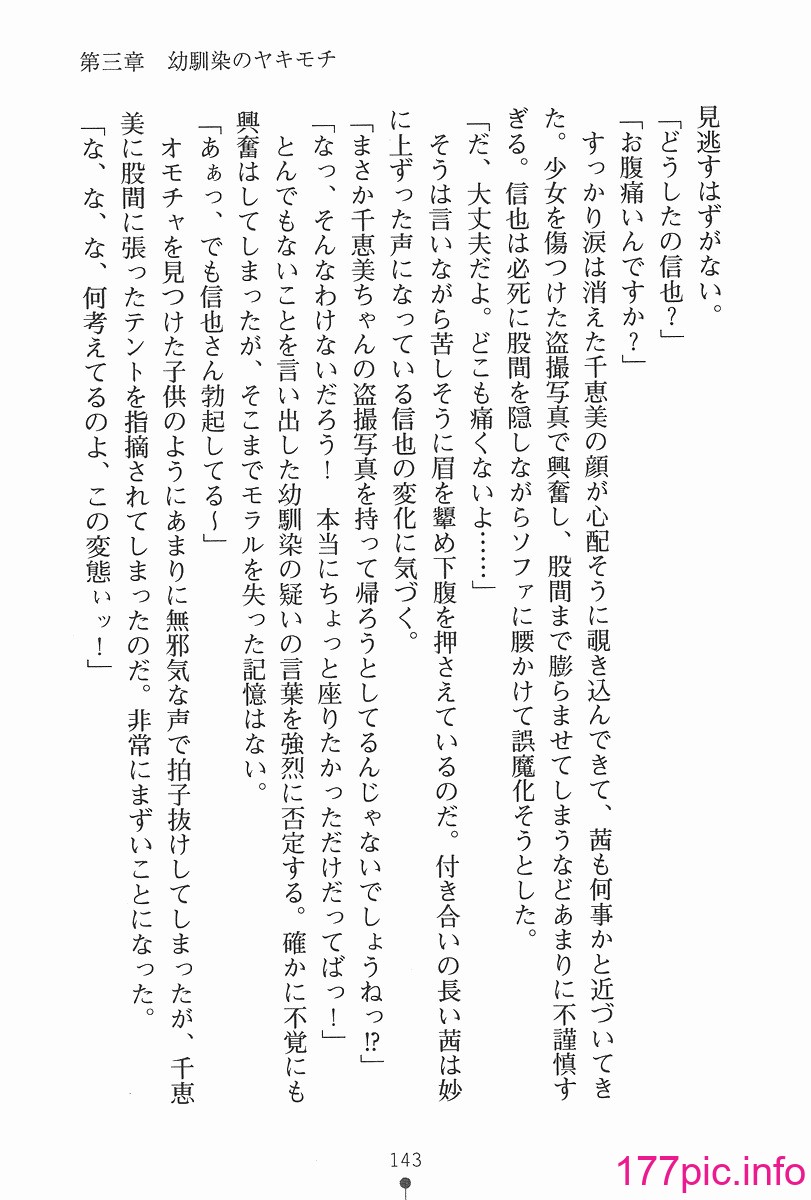 第三章　幼馴染のヤキモチ
見逃すはずがない。
「どうしたの信也？」
「お腹痛いんですか？」
　すっかり涙は消えた千恵美の顔が心配そうに覗き込んできて、茜も何事かと近づいてき
た。少女を傷つけた盗撮写真で興奮し、股間まで膨らませてしまうなどあまりに不謹慎す
ぎる。信也は必死に股間を隠しながらソファに腰かけて誤魔化そうとした。
「だ、大丈夫だよ。どこも痛くないよ……」
　そうは言いながら苦しそうに眉を顰め下腹を押さえているのだ。付き合いの長い茜は妙
に上ずった声になっている信也の変化に気づく。
「まさか千恵美ちゃんの盗撮写真を持って帰ろうとしてるんじゃないでしょうねっ⁉」
「なっ、そんなわけないだろう！　本当にちょっと座りたかっただけだってばっ！」
　とんでもないことを言い出した幼馴染の疑いの言葉を強烈に否定する。確かに不覚にも
興奮はしてしまったが、そこまでモラルを失った記憶はない。
「あぁっ、でも信也さん勃起してる～」
　オモチャを見つけた子供のようにあまりに無邪気な声で拍子抜けしてしまったが、千恵
美に股間に張ったテントを指摘されてしまったのだ。非常にまずいことになった。
「な、な、な、何考えてるのよ、この変態ぃッ！」
143
177pic.info